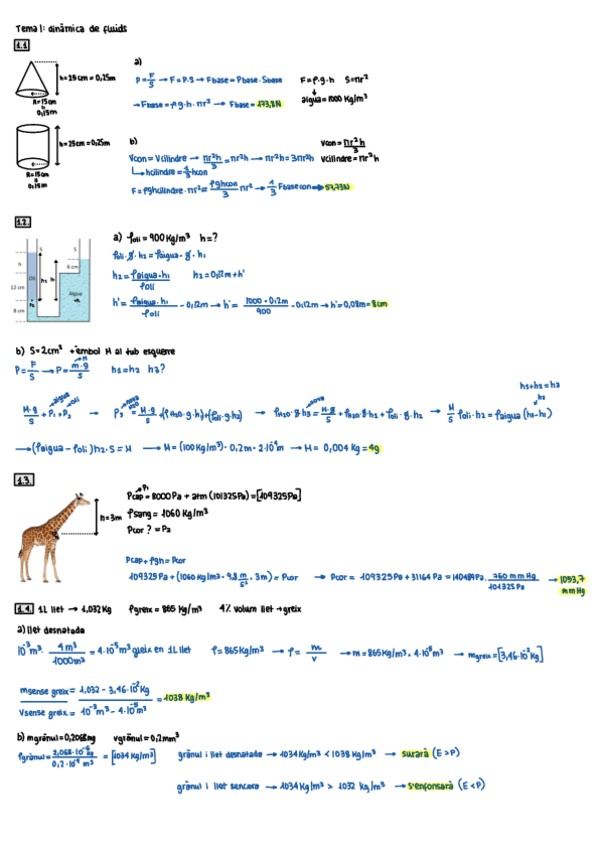 Tema 1: dinàmica de fluids
1.1
h=25cm=0,25m
R=15cm
=
0,15m
h=25cm=0,25m
R=15cm
=
0,15m
a)
P=F/S → F=P·S → Fbase=Pbase·Sbase F=ρ·g·h S=πr²
→Fbase=ρg·h·πr² → Fbase=173,8N aigua=1000 Kg/m³
b) Vcon=πr²h/3
Vcon=Vcilindre → πr²h/3=πr²h → πr²h=3πr²h Vcilindre=πr²h
hcilindre=1/3hcon
F=ρghcilindre·πr²=ρghcon/3 πr² → 1/3 Fbasecon → 57,73N
1.2.
S S
h
6 cm
Oli
h2
12 cm
Aigua
8 cm
a) ρoli=900Kg/m³ h=?
ρoli·g·h2=ρaigua·g·h1
h2=ρaigua·h1/ρoli h2=0,12m+h'
h'=ρaigua·h1/ρoli -0,12m → h'=1000·0,2m/900 -0,12m → h'=0,08m=8cm
b) S=2cm² +èmbol M al tub esquerre
P=F/S → P=m·g/S h1=h2 h3?
h1+h2=h3
M·g/S+P1+P2 → P3=M·g/S+(ρH2O·g·h)+(ρoli·g·h2) → ρH2O·g·h3=M·g/S+ρH2O·g·h1+ρoli·g·h2 → M/S ρoli·h2=ρaigua(h3-h1)
→(ρaigua-ρoli)h2·S=M → M=(100Kg/m³)·0,2m·2·10⁻⁴m → M=0,004kg=4g
1.3.
h=3m
Pcap=8000Pa+atm(101325Pa)=[109325Pa]
ρsang=1060Kg/m³
Pcor?=Pa
Pcap+ρgh=Pcor
109325Pa+(1060kg/m3·9,8 m/s²·3m)=Pcor → Pcor=109325Pa+31164Pa=140489Pa·760mmHg/101325Pa → 1053,7 mmHg
1.4. 1L llet → 1,032Kg ρgreix=865Kg/m³ 4% volum llet→greix
a)llet desnatada
10⁻³m³·4m³/100m³=4·10⁻⁵m³greix en 1Lllet ρ=865Kg/m³ → ρ=m/v → m=865Kg/m³·4·10⁻⁵m³ → mgreix=[3,46·10⁻²Kg]
msense greix/Vsense greix=1.032-3,46·10⁻²Kg/10⁻³m³-4·10⁻⁵m³=1038Kg/m³
b) mgrànul=0,2068mg vgrànul=0,2mm³
ρgrànul=2,068·10⁻⁶Kg/0,2·10⁻⁹m³=[1034Kg/m³] grànul i llet desnatada → 1034Kg/m³<1038Kg/m³ → surarà (E>P)
grànul i llet sencera → 1034Kg/m³>1032kg/m³ → s'enfonsarà (E<P)